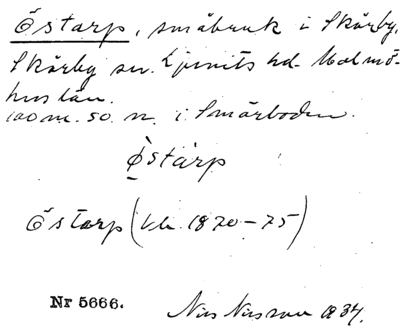 Östarp, småbruk i Skårby,
Skårby sn. Ljunits hd. Malmö-
hus län.
100 m. SO. n. i Smårboden.
Östarp
Östarp (kh. 1870-75)
Nr 5666. Nils Nilsson 1934.